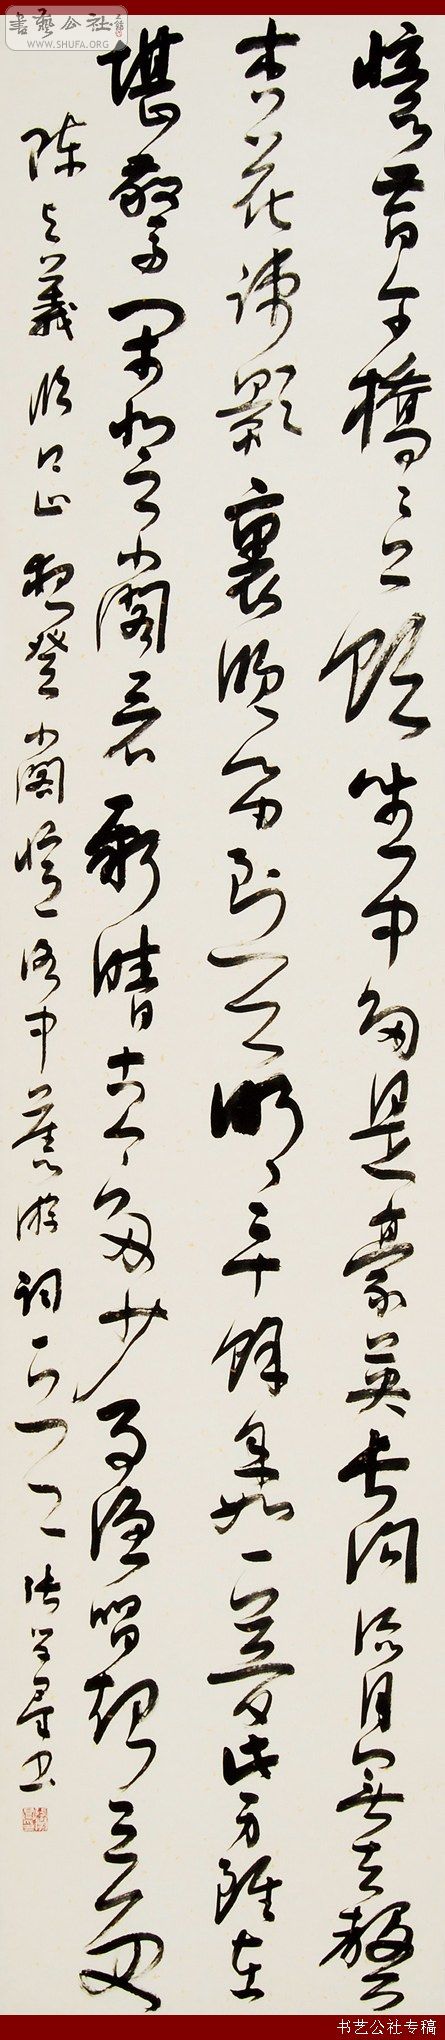 書藝公社
WWW.SHUFA.ORG
憶昔午橋〻上飲坐中多是豪英長溝流月無去聲
杏花疎影裏吹笛到天明二十餘年如一夢此身雖在
堪驚閑登小閣看新晴古今多少事漁唱起三更
陳與義臨江仙夜登小閣憶洛中舊游詞 張學群書
书艺公社专稿